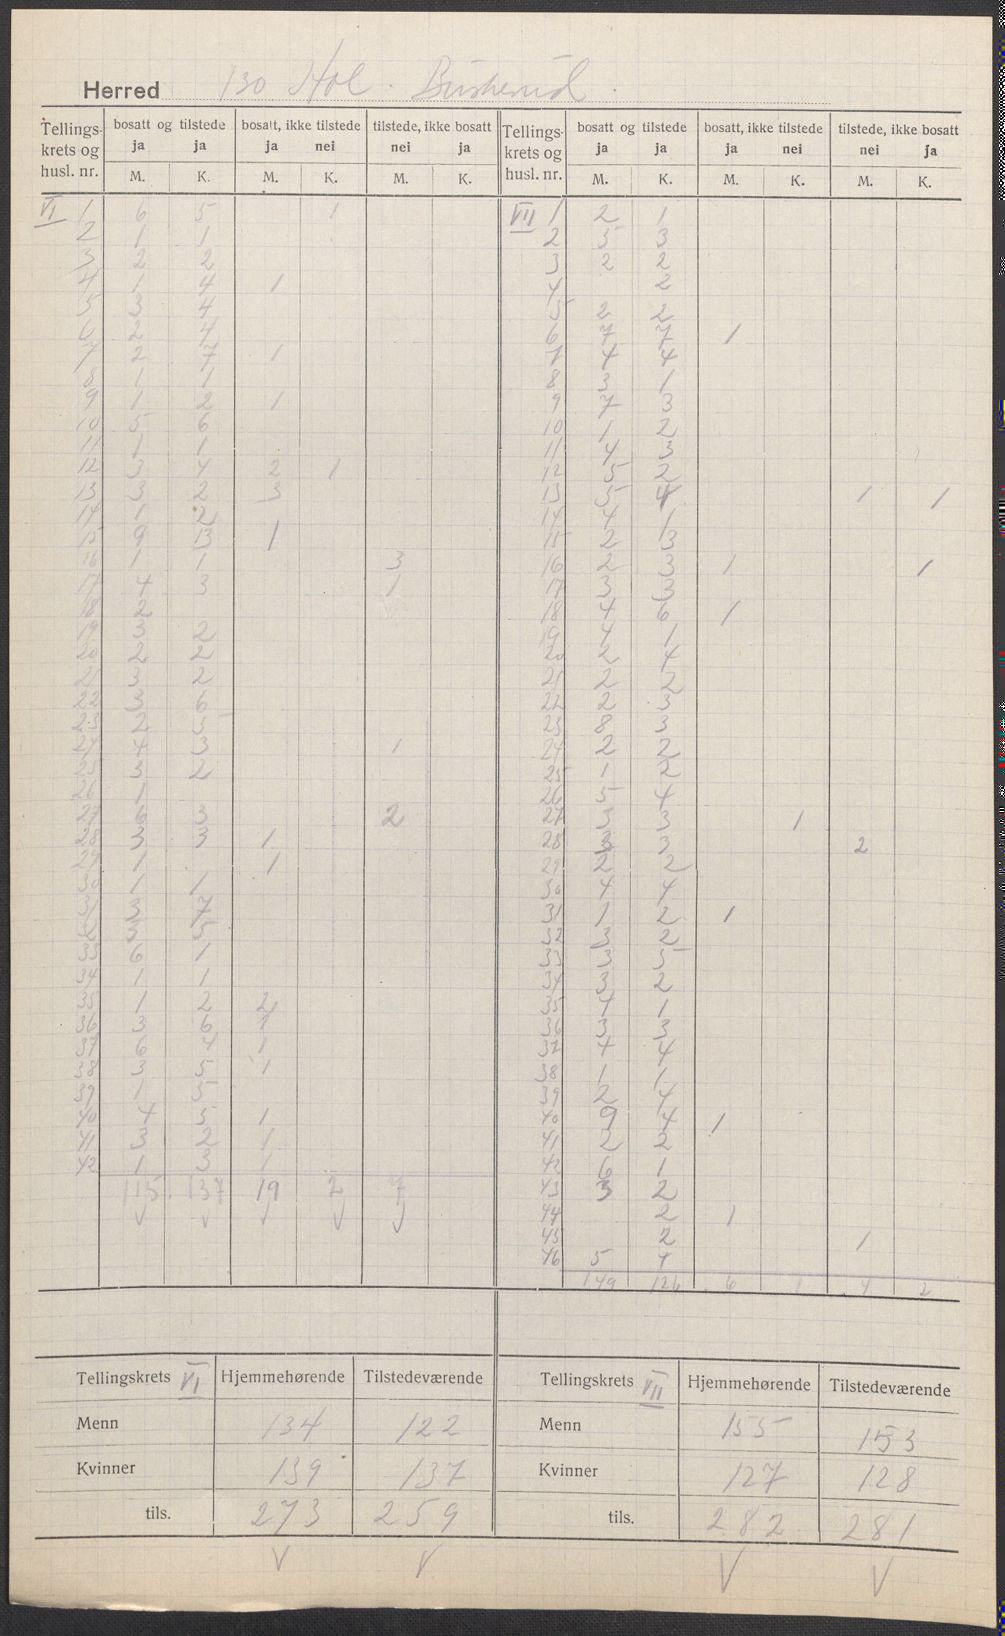 Herred 130 Hol. Buskerud.
Tellings- krets og husl. nr. | bosatt og tilstede ja ja | bosatt, ikke tilstede ja nei | tilstede, ikke bosatt nei ja
M. K. M. K. M. K.
VI 1 6 5 1
2 1 1
3 2 2
4 1 4 1
5 3 4
6 2 4
7 2 7 1
8 1 1
9 1 2 1
10 5 6
11 1 1
12 3 4 2 1
13 3 2 3
14 1 2
15 9 13 1
16 1 1 3
17 4 3 1
18 2
19 3 2
20 2 2
21 3 2
22 3 6
23 2 5
24 4 3 1
25 3 2
26 1
27 6 3 2
28 3 3 1
29 1 1
30 1 1
31 3
32 3 5
33 6 1
34 1 1
35 1 2 2
36 3 6 1
37 6 4 1
38 3 5 1
39 1 5
40 4 5 1
41 3 2 1
42 1 3 1
115 137 19 2 7
Tellings- krets og husl. nr. | bosatt og tilstede ja ja | bosatt, ikke tilstede ja nei | tilstede, ikke bosatt nei ja
M. K. M. K. M. K.
VII 1 2 1
2 5 3
3 2 2
4 2
5 2 2
6 7 7 1
7 4 4
8 3 1
9 7 3
10 1 2
11 4 3
12 5 2
13 5 4 1 1
14 4 1
15 2 3
16 2 3 1 1
17 3 3
18 4 6 1
19 4 1
20 2 4
21 2 2
22 2 3
23 8 3
24 2 2
25 1 2
26 5 4
27 3 3 1
28 3 3 2
29 2 2
30 4 4
31 1 2 1
32 3 2
33 3 5
34 3 2
35 4 1
36 3 3
37 4 4
38 1 1
39 2 4
40 9 4 1
41 2 2
42 6 1
43 3 2
44 2 1
45 2 1
46 5 4
149 126 6 1 4 2
Tellingskrets VI Hjemmehørende Tilstedeværende
Menn 134 122
Kvinner 139 137
tils. 273 259
Tellingskrets VII Hjemmehørende Tilstedeværende
Menn 155 153
Kvinner 127 128
tils. 282 281